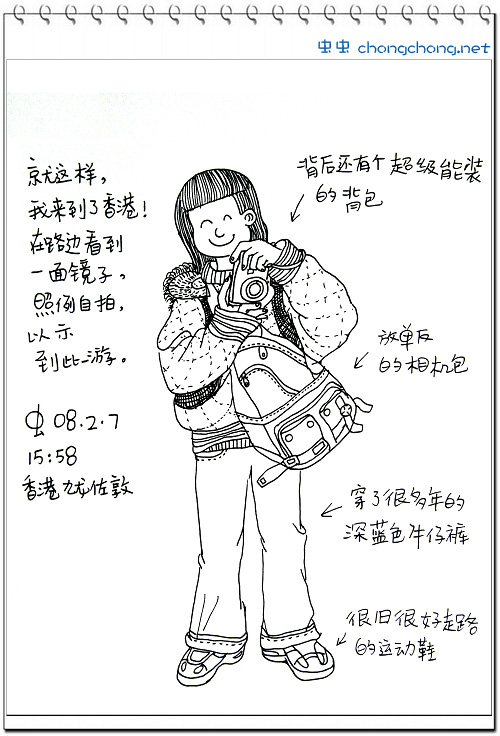 虫虫 chongchong.net
就这样，
我来到了香港！
在路边看到
一面镜子。
照例自拍，
以示
到此一游。
虫 08.2.7
15:58
香港九龙佐敦
背后还有个超级能装
的背包
放单反
的相机包
穿了很多年的
深蓝色牛仔裤
很旧很好走路
的运动鞋